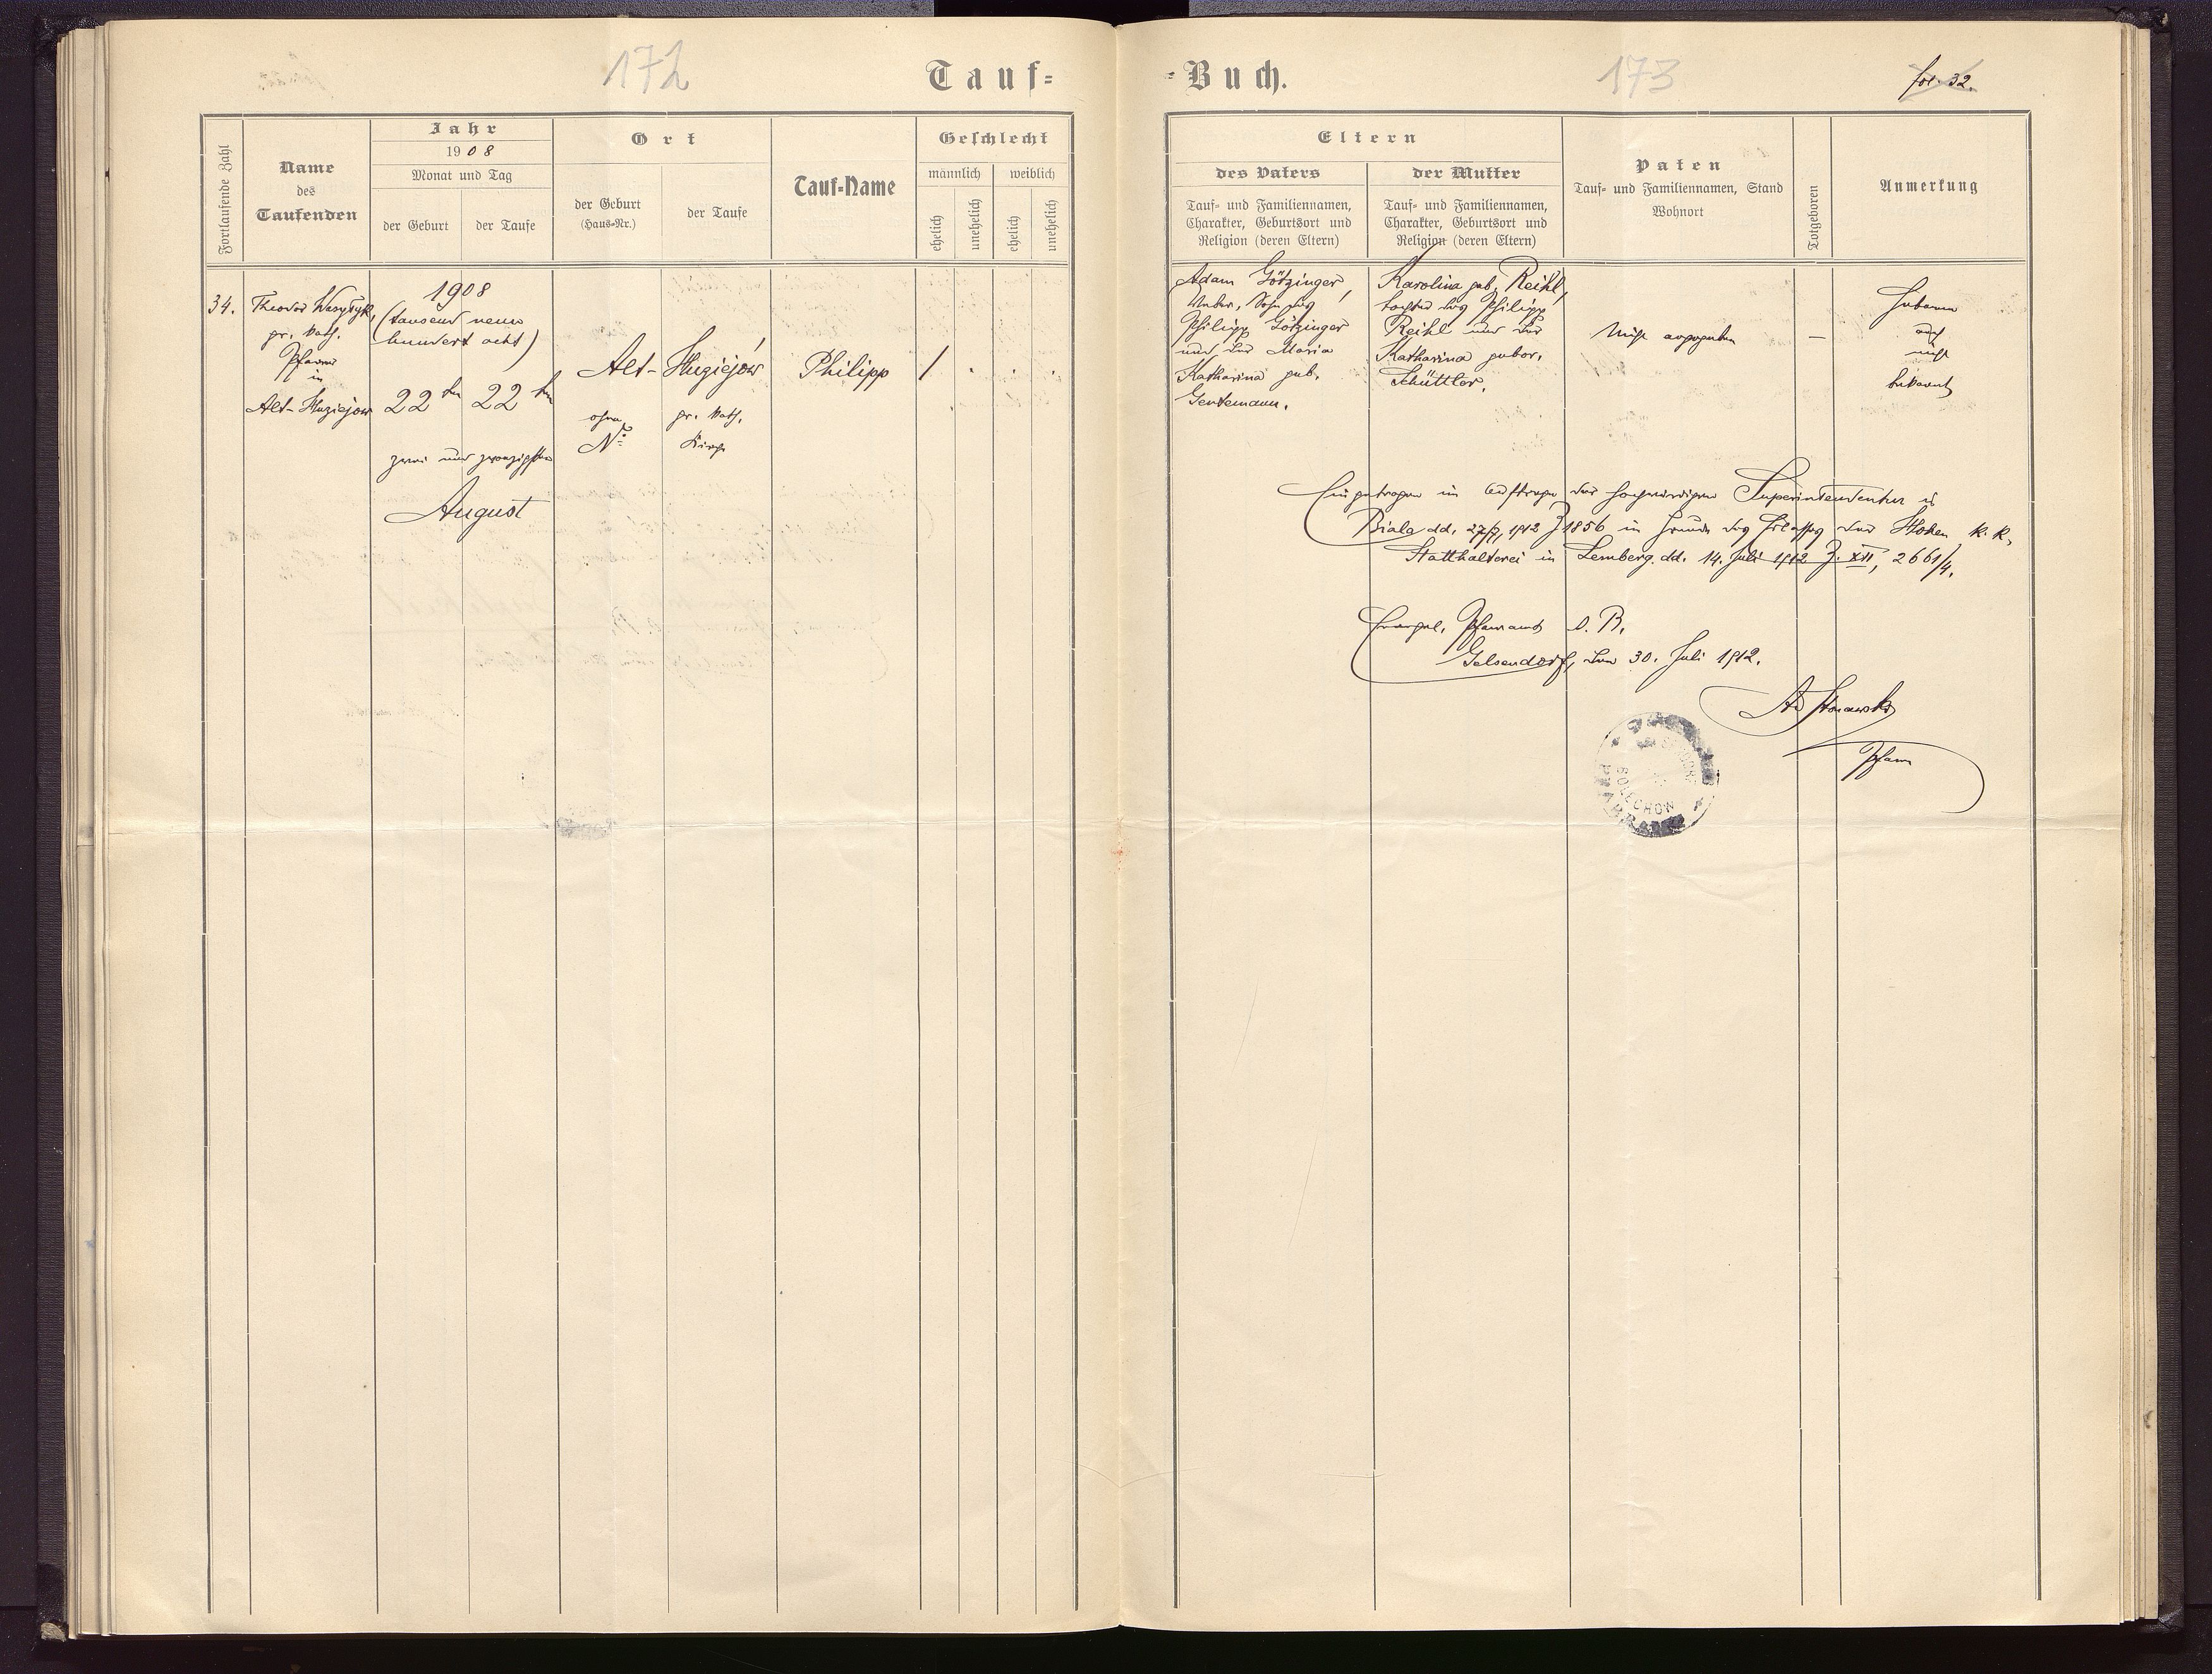 172
Tauf=
Fortlaufende Zahl
Name
des
Taufenden
Jahr
1908
Monat und Tag
der Geburt
der Taufe
Ort
der Geburt
(Haus=Nr.)
der Taufe
Tauf=Name
Geschlecht
männlich
weiblich
ehelich
unehelich
ehelich
unehelich
34.
Theodor
gr. kath.
Pfarrer
in
Alt-Hugiejow
1908
(tausend neun
hundert acht)
22ten 22ten
zwei und zwanzigsten
August
Alt-Hugiejów
ohne
No
gr. kath.
Kirche
Philipp
/ . . .
=Buch.
173
fol. 32.
Eltern
des Vaters
Tauf= und Familiennamen,
Charakter, Geburtsort und
Religion (deren Eltern)
der Mutter
Tauf= und Familiennamen,
Charakter, Geburtsort und
Religion (deren Eltern)
Paten
Tauf= und Familiennamen, Stand
Wohnort
Totgeboren
Anmerkung
Adam Götzinger,
Weber, Sohn des
Philipp Götzinger
und der Maria
Katharina geb.
Gentemann.
Karolina geb. Reihl,
Tochter des Philipp
Reihl und der
Katharina gebor.
Schüttler.
Nicht angegeben
—
Hebamme
auch
nicht
bekannt
Eingetragen im Auftrage der hochwürdigen Superintendentur in
Biala dd. 27/7, 1912 Z 1856 im Grunde des Erlasses der Hohen k. k.
Statthalterei in Lemberg dd. 14. Juli 1912 Z. XII, 2661/4.
Evangel. Pfarramt A. B.
Gelsendorf, den 30. Juli 1912.
Pfarrer
BOLECHOW
PFARRAMT